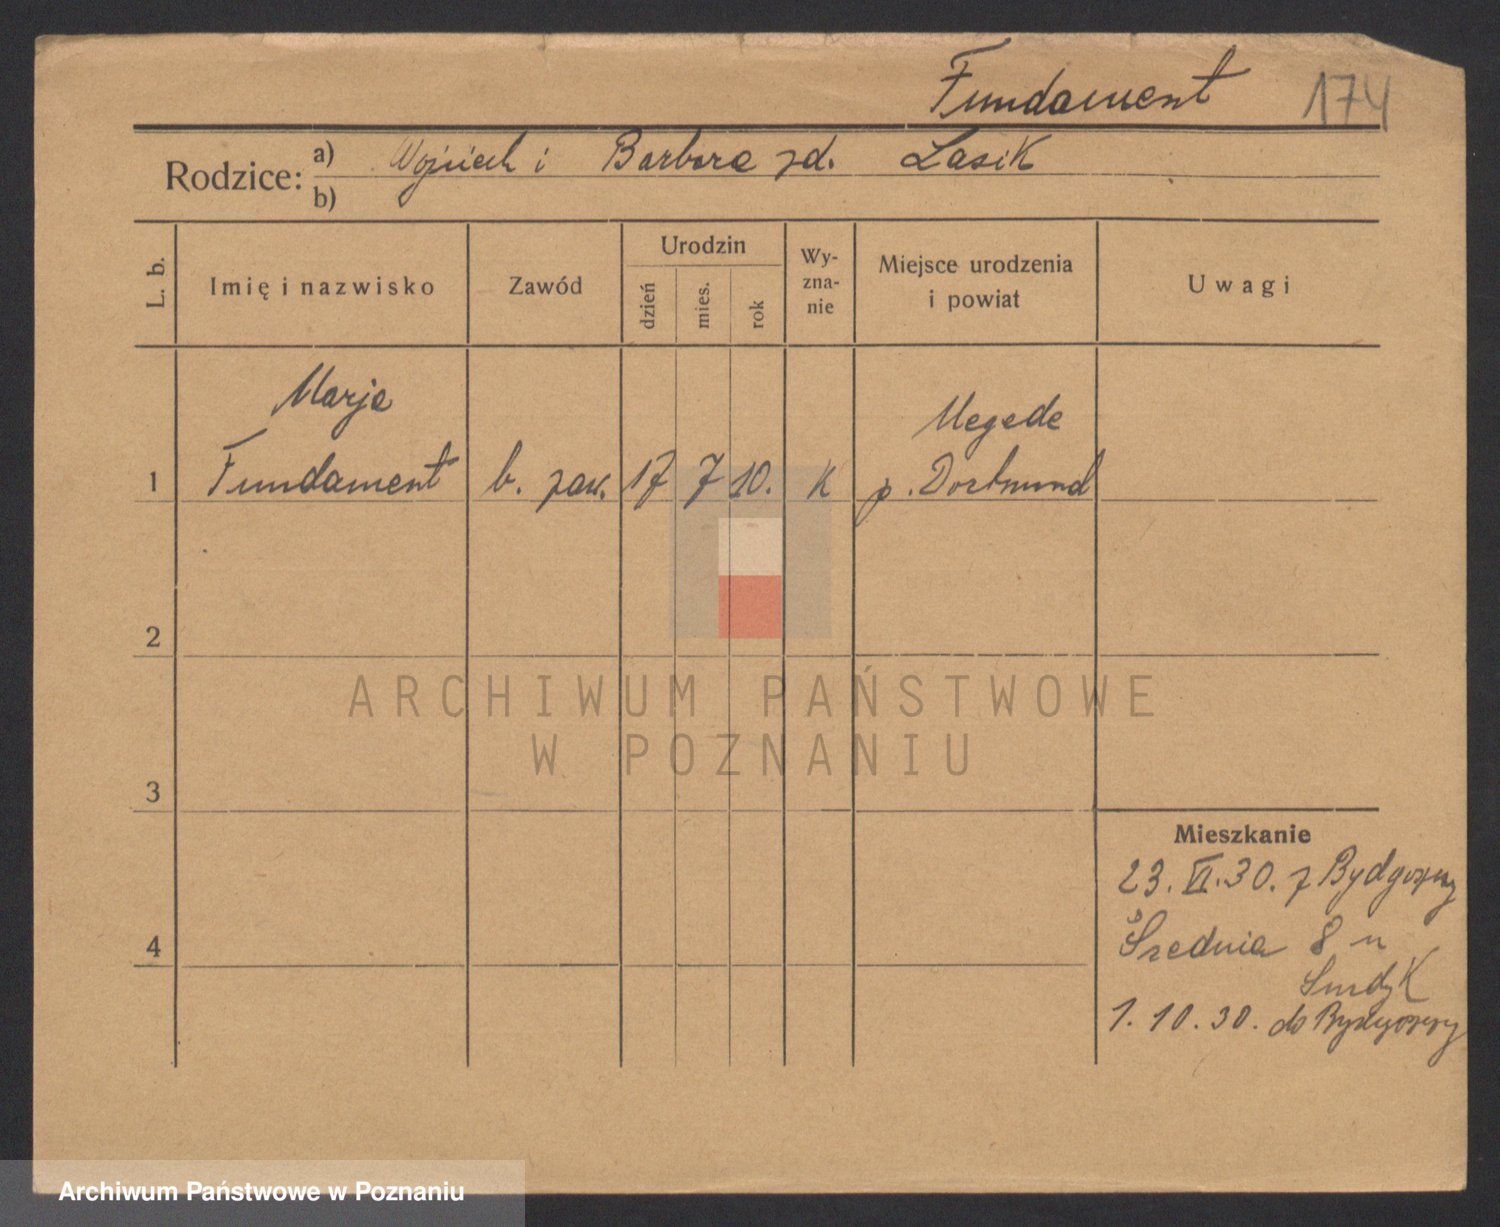 Fundament 174
Rodzice: a) Wojciech i Barbara zd. Lasik
b)
L. b.
Imię i nazwisko
Zawód
Urodzin
dzień
mies.
rok
Wy-
zna-
nie
Miejsce urodzenia
i powiat
Uwagi
Marja
Megede
1 Fundament b. zaw. 17 7 10. K p. Dortmund
2
ARCHIWUM PAŃSTWOWE
W POZNANIU
3
Mieszkanie
23. VI. 30. z Bydgoszczy
Średnia 8 u
4
1. 10. 30. do Bydgoszczy
Archiwum Państwowe w Poznaniu